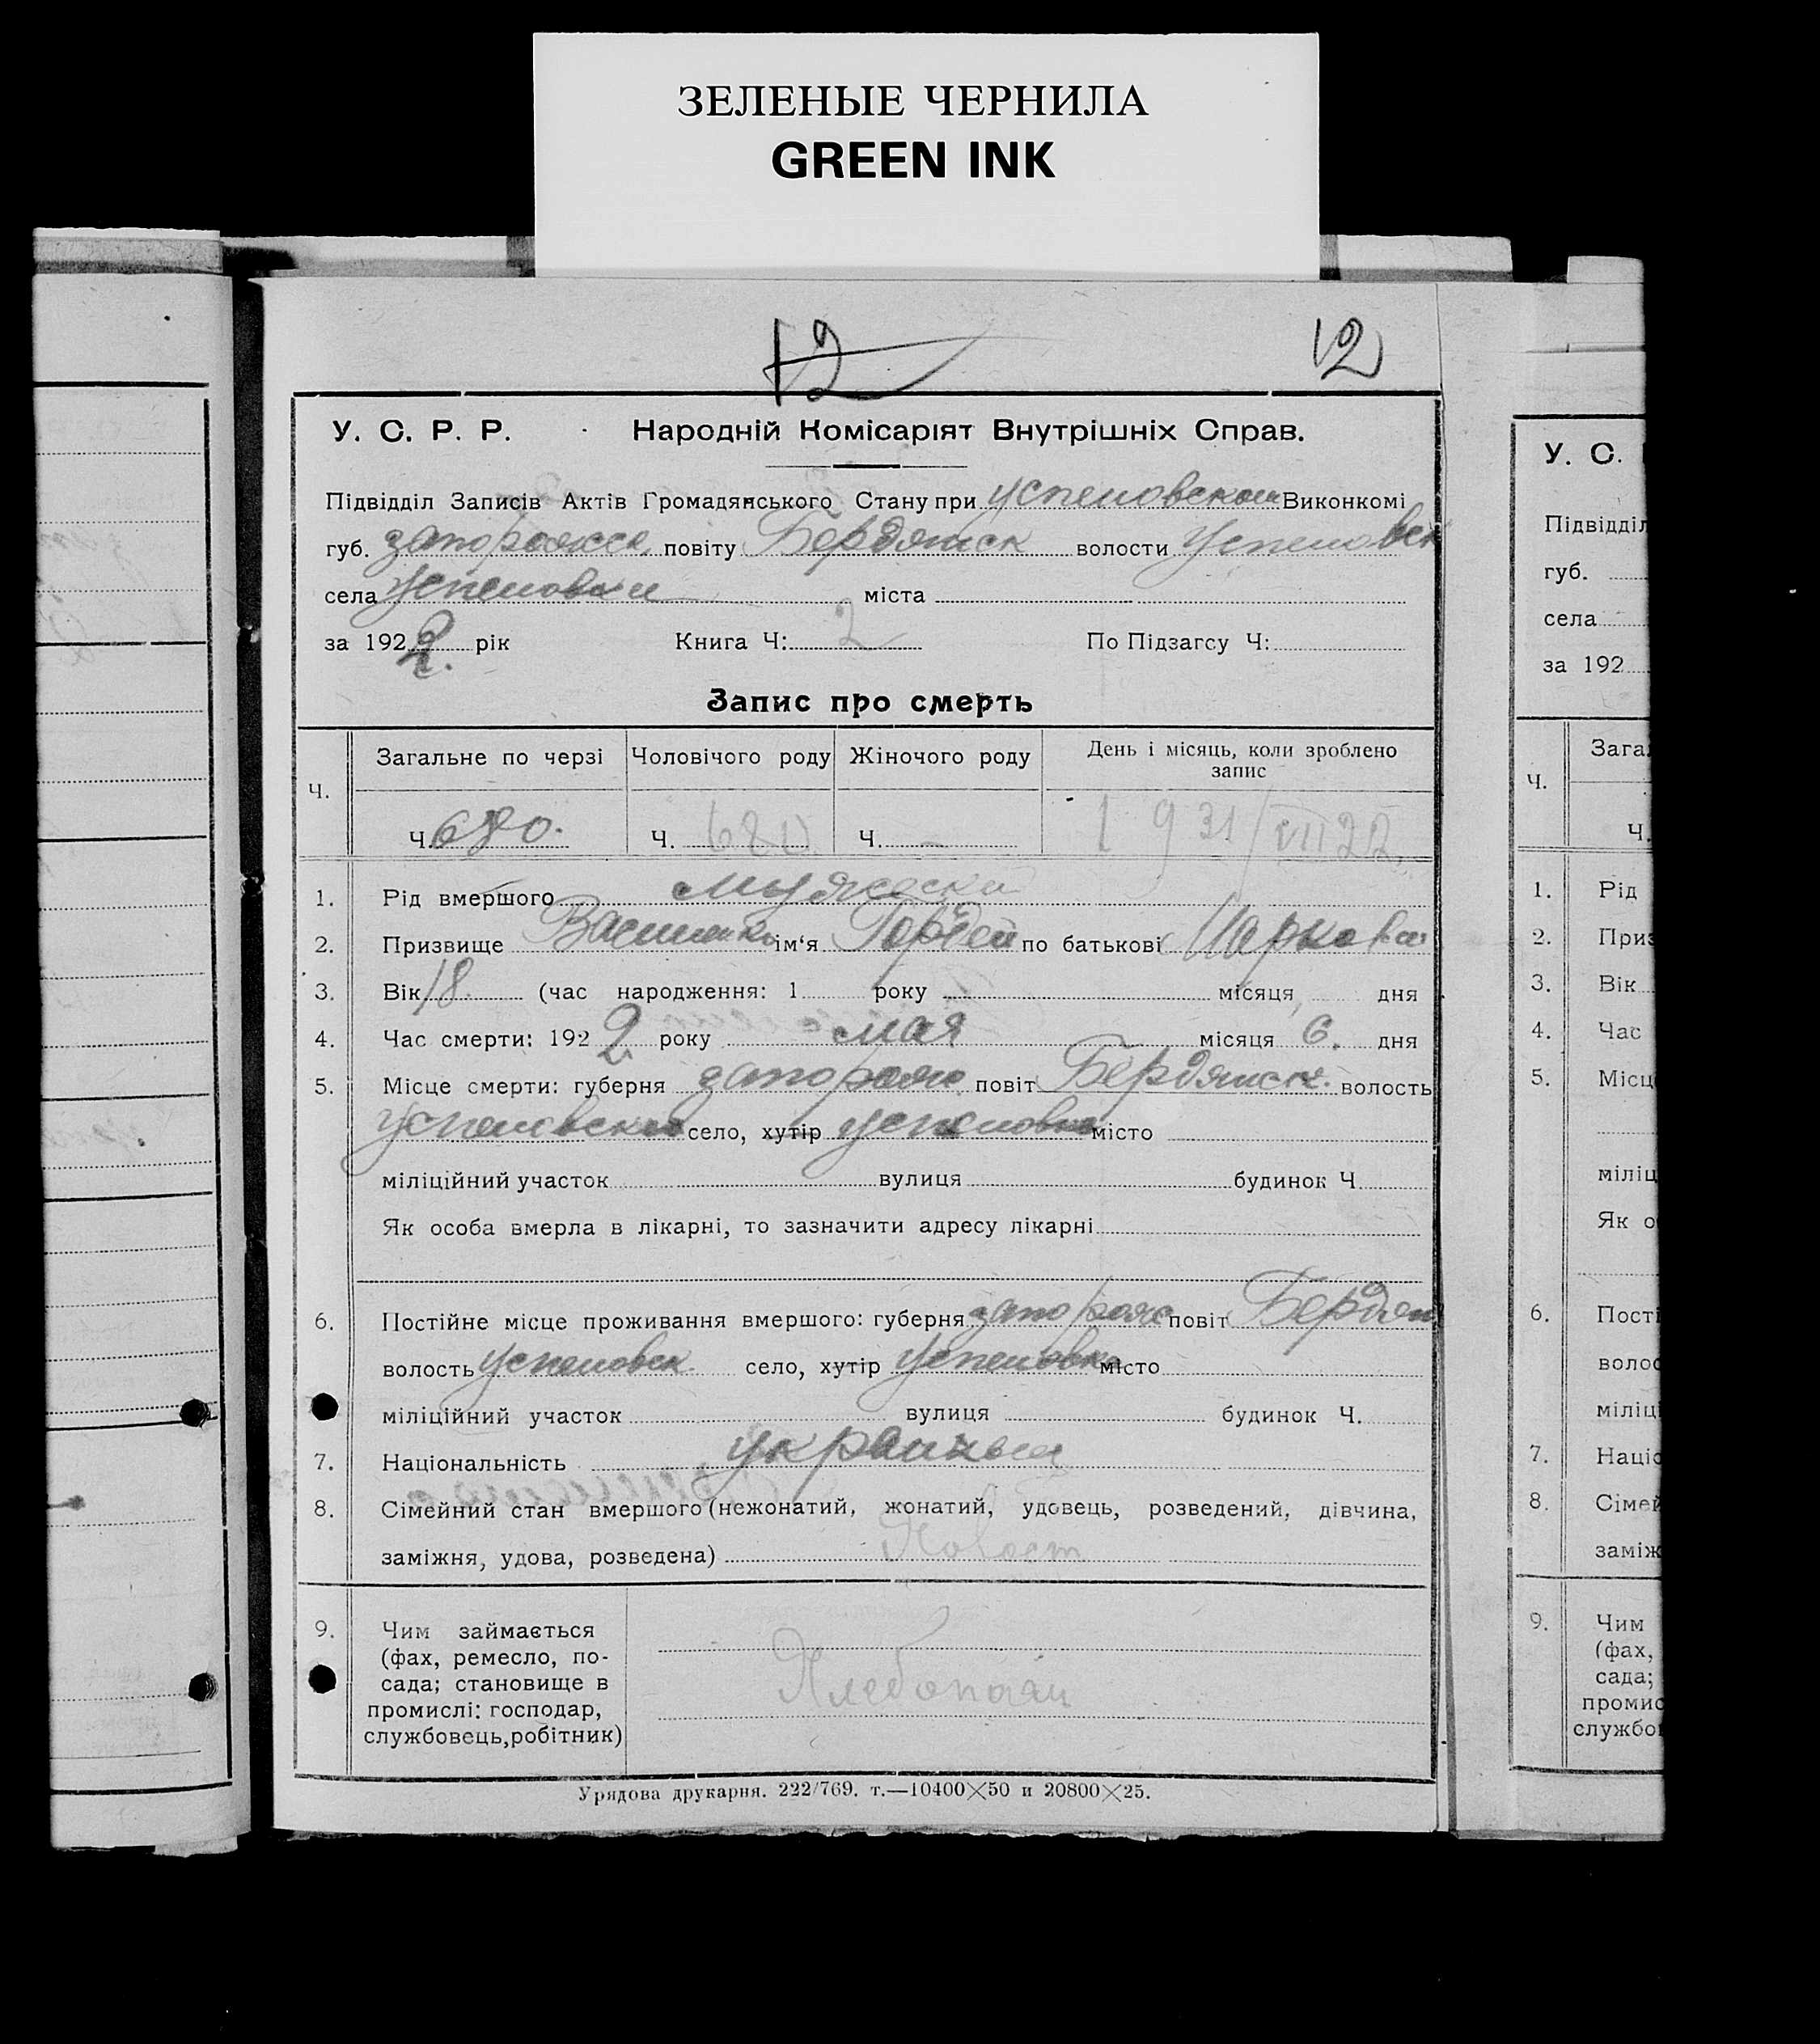 ЗЕЛЕНЫЕ ЧЕРНИЛА
GREEN INK
12 12
У. С. Р. Р. Народній Комісаріят Внутрішніх Справ.
Підвідділ Записів Актів Громадянського Стану при Успеновском Виконкомі
губ. Запорожск. повіту Бердянск волости Успеновск
села Успеновки міста
за 1922. рік Книга Ч: 2 По Підзагсу Ч:
Запис про смерть
Ч. Загальне по черзі Чоловічого роду Жіночого роду День і місяць, коли зроблено
запис
Ч. 680. Ч. 680 Ч. – 31/VII 22
1. Рід вмершого мужеский
2. Призвище Васи ім‘я Гордей по батькові Марков
3. Вік 18 (час народження: 1 року місяця дня
4. Час смерти: 1922 року мая місяця 6. дня
5. Місце смерти: губерня Запорож повіт Бердянск. волость
Успеновская село, хутір Успеновка місто
міліційний участок вулиця будинок Ч.
Як особа вмерла в лікарні, то зазначити адресу лікарні
6. Постійне місце проживання вмершого: губерня Запорож повіт Бердян
волость Успеновск. село, хутір Успеновка місто
міліційний участок вулиця будинок Ч.
7. Національність
8. Сімейний стан вмершого (нежонатий, жонатий, удовець, розведений, дівчина,
заміжня, удова, розведена) Холост
9. Чим займається
(фах, ремесло, по-
сада; становище в
промислі: господар,
службовець, робітник)
Хлебопаш
Урядова друкарня. 222/769. т.—10400×50 и 20800×25.
У. С.
Підвідділ
губ.
села
за 192
Ч. Зага
Ч.
1. Рід
2. Приз
3. Вік
4. Час
5. Місц
міліц
Як о
6. Пості
волос
міліці
7. Націо
8. Сімей
заміж
9. Чим
(фах,
сада;
промис
службо